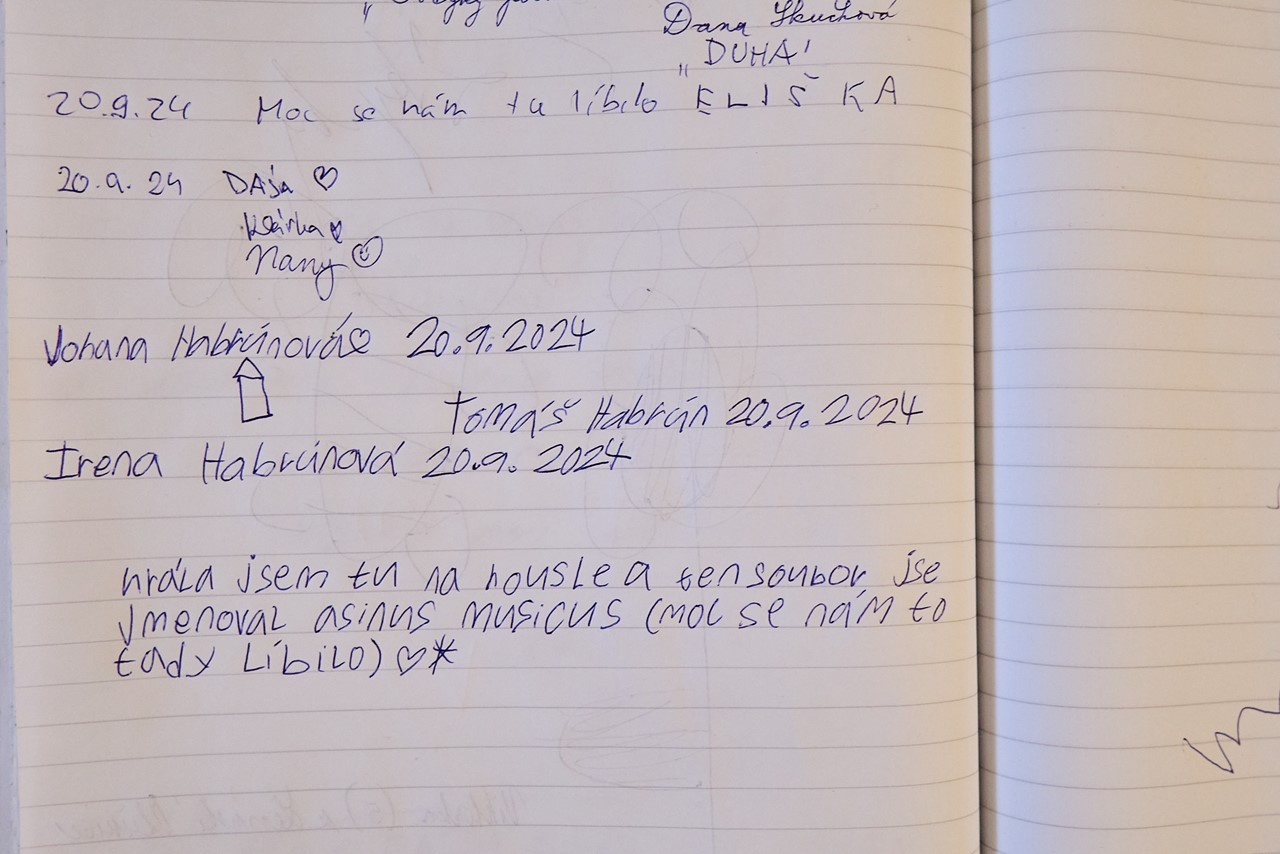 Dana Skuchová
"DUHA"
20.9.24 Moc se nám tu líbilo ELIŠKA
20.9.24 DÁša
Klárka
Nany
Johana Habrcínová 20.9.2024
Tomáš Habrcín 20.9.2024
Irena Habrcínová 20.9.2024
hrála jsem tu na housle a ten soubor jse
jmenoval asinus musicus (moc se nám to
tady líbilo)